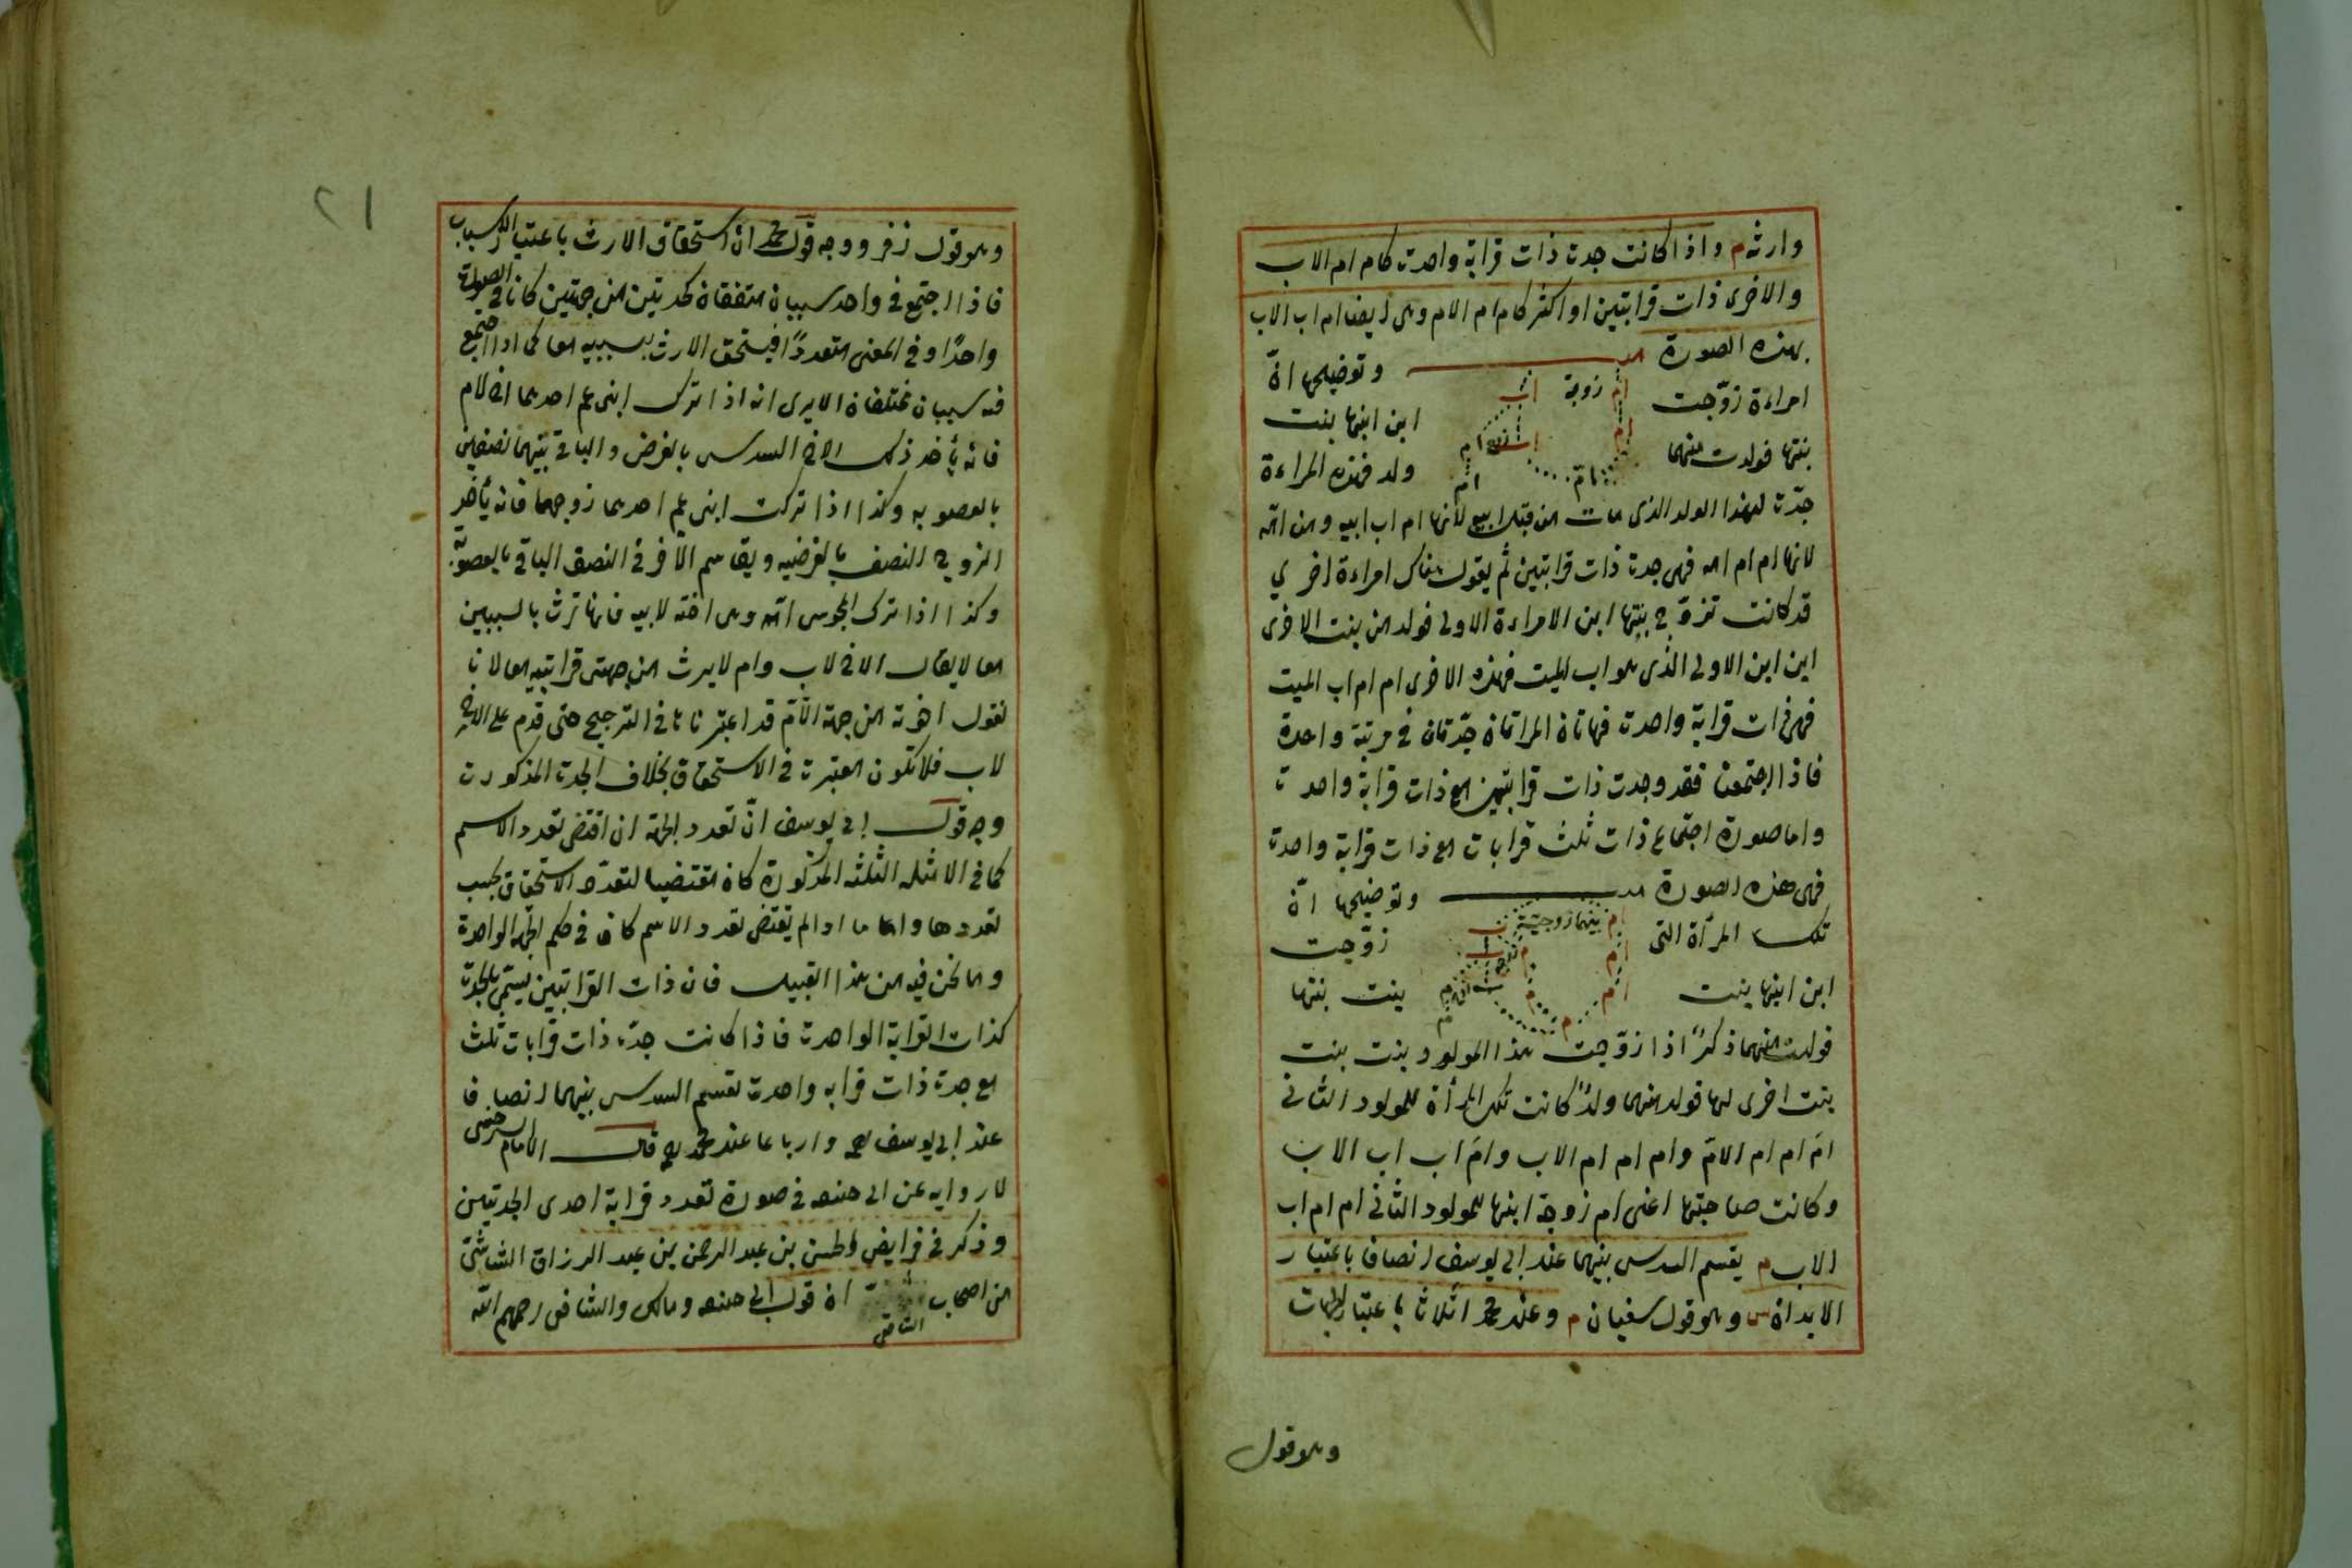 وارثه م واذا كانت جدة ذات قرابة واحدة كام ام الاب
والاخرى ذات قرابتين او اكثر كام ام الام وهى ايضا ام اب الاب
بهذه الصورة وتوضيحها انّ
امراءة زوّجت ابن ابنها بنت
ام زوجة اب
بنتها فولدت منهما ولد فهذه المراءة
جدّة لهذا الولد الذى مات من قبل ابيه لأنها ام اب ابيه ومن امّه
لانها ام ام امه فهى جدة ذات قرابتين ثم يقول هناك امراءة اخرى
قد كانت تزوّج بنتها ابن الامراءة الاولى فولد من بنت الاخرى
ابن ابن الاولى الذى هو اب الميت فهذه الاخرى ام ام اب الميت
فهى ذات قرابة واحدة فهاتان المراتان جدّتان فى مرتبة واحدة
فاذا اجتمعتا فقد وجدت ذات قرابتين مع ذات قرابة واحدة
واما صورة اجتماع ذات ثلث قرابات مع ذات قرابة واحدة
فهى هذه الصورة وتوضيحها انّ
تلك المرأة التى زوّجت
ام بينهما زوجيّة اب
ابن ابنها بنت بنت بنتها
فولدت منهما ذكرًا اذا زوّجت هذا المولود بنت بنت
بنت اخرى لها فولد منهما ولدًا كانت تلك المرأة للمولود الثانى
امّ ام ام الامّ وام ام ام الاب وامّ اب اب الاب
وكانت صاحبتها اعنى ام زوجة ابنها للمولود الثانى ام ام اب
الاب م يقسم السدس بينهما عند ابى يوسف انصافا باعتبار
الابدان س وهو قول سفيان م وعند محمد اثلاثا باعتبار الجهات
وهو قول
٢١
وهو قول زفر ووجه قول محمد ان استحقاق الارث باعتبار الاسباب
فاذا اجتمع فى واحد سببان متفقان كجدتين من جهتين كانا فى الصورة
واحدًا وفى المعنى متعددًا فيستحق الارث بسببيه معا كما اذا اجتمع
فيه سببان مختلفان الا يرى انه اذا ترك ابنى عم احدهما اخ لام
فانه يأخذ ذلك الاخ السدس بالفرض والباقى بينهما نصفين
بالعصوبه وكذا اذا تركت ابنى عم احدهما زوجها فانه يأخذ
الزوج النصف بالفرضيه ويقاسم الآخر فى النصف الباقى بالعصوبّة
وكذا اذا ترك المجوسى امّه وهى اخته لابيه فانها ترث بالسببين
معا لا يقال الاخ لاب وام لا يرث من جهتى قرابتيه معا لانا
نقول اخوته من جهة الامّ قد اعتبرناها فى الترجيح حتى قدم على الاخ
لاب فلا تكون معتبرة فى الاستحقاق بخلاف الجدة المذكورة
وجه قول ابى يوسف انّ تعدد الجهة ان اقتضى تعدد الاسم
كما فى الامثله الثلثه المذكورة كان مقتضيا لتعدّد الاستحقاق بحسب
تعددها واما ما اذا لم يقتض تعدد الاسم كان فى حكم الجهة الواحدة
وما نحن فيه من هذا القبيل فان ذات القرابتين يسمّى بالجدة
كذات القرابة الواحدة فاذا كانت جدّة ذات قرابات ثلث
مع جدة ذات قرابه واحدة تقسم السدس بينهما انصافا
عند ابى يوسف رح وارباعا عند محمد رح قال الامام السرخسى
لا روايه عن ابى حنيفه فى صورة تعدد قرابة احدى الجدتين
وذكر فى فرايض الحسن بن عبد الرحمن بن عبد الرزاق الشاشى
من اصحاب الشافعى ان قول ابى حنيفه ومالك والشافعى رحمهم الله